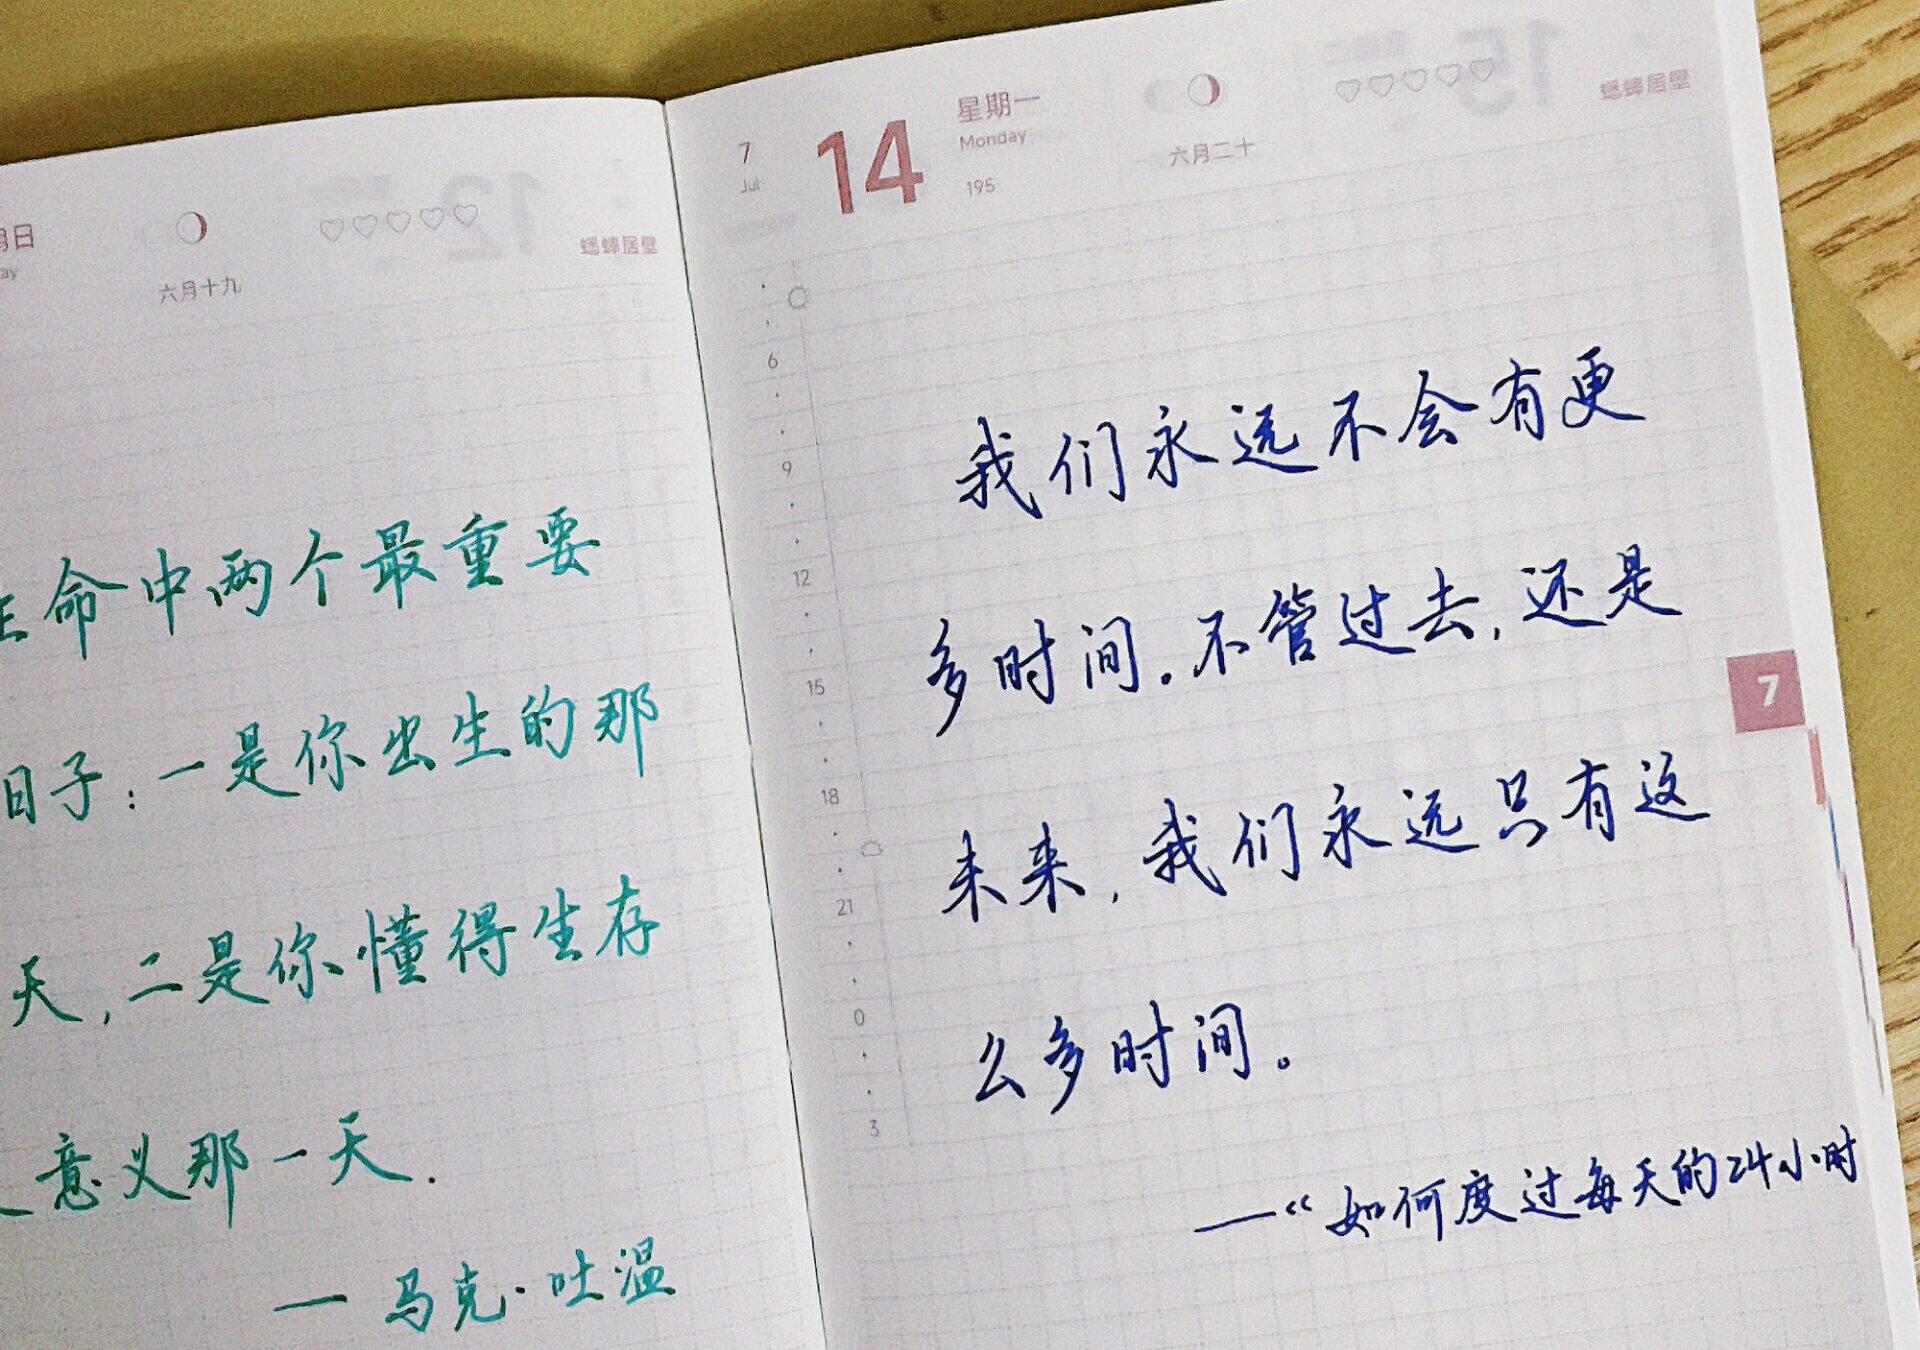 月日
ay
六月十九
♡♡♡♡♡
蟋蟀居璧
生命中两个最重要
日子：一是你出生的那
天，二是你懂得生存
意义那一天．
— 马克·吐温
7
Jul
14
星期一
Monday
195
六月二十
♡♡♡♡♡
6
9
12
15
18
21
0
3
我们永远不会有更
多时间。不管过去，还是
未来，我们永远只有这
么多时间。
——“如何度过每天的24小时
7